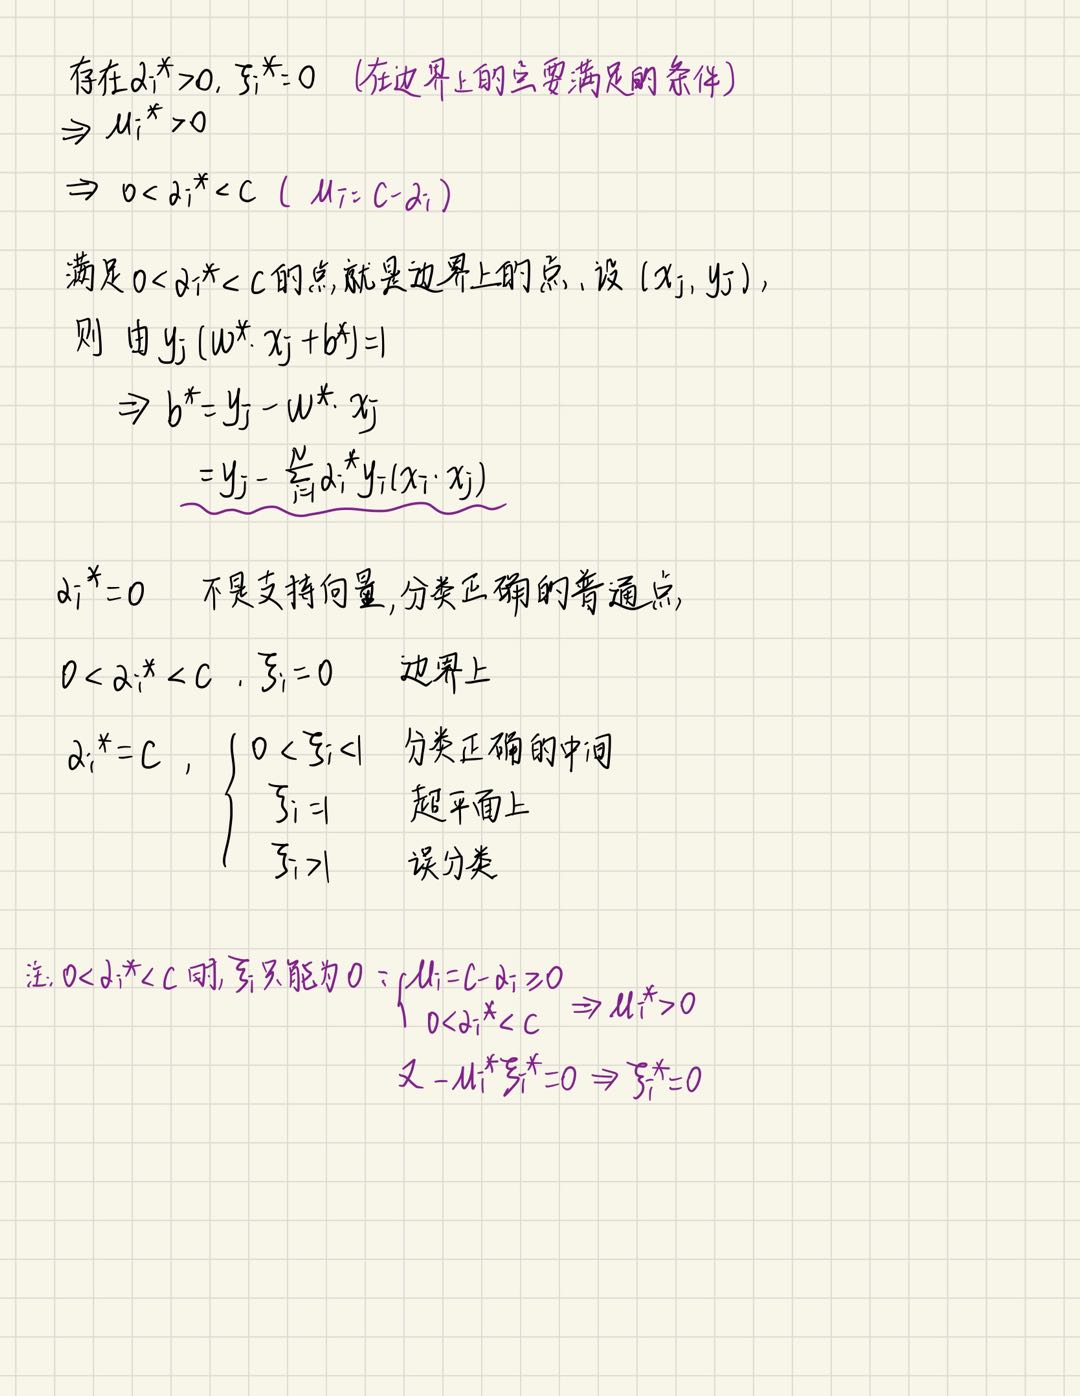 存在 αi*>0, ξi*=0 (在边界上的点要满足的条件)
⇒ μi*>0
⇒ 0<αi*<C ( μi=C-αi )
满足 0<αi*<C 的点,就是边界上的点、设 (xj, yj),
则 由 yj(w*·xj+b*)=1
⇒ b*=yj-w*·xj
=yj-∑_{i=1}^{N} αi*yi(xi·xj)
αi*=0 不是支持向量,分类正确的普通点,
0<αi*<C , ξi=0 边界上
αi*=C , { 0<ξi<1 分类正确的中间
ξi=1 超平面上
ξi>1 误分类
注: 0<αi*<C 时, ξi只能为0 ∵ { μi=C-αi≥0
0<αi*<C ⇒ μi*>0
又 -μi*ξi*=0 ⇒ ξi*=0